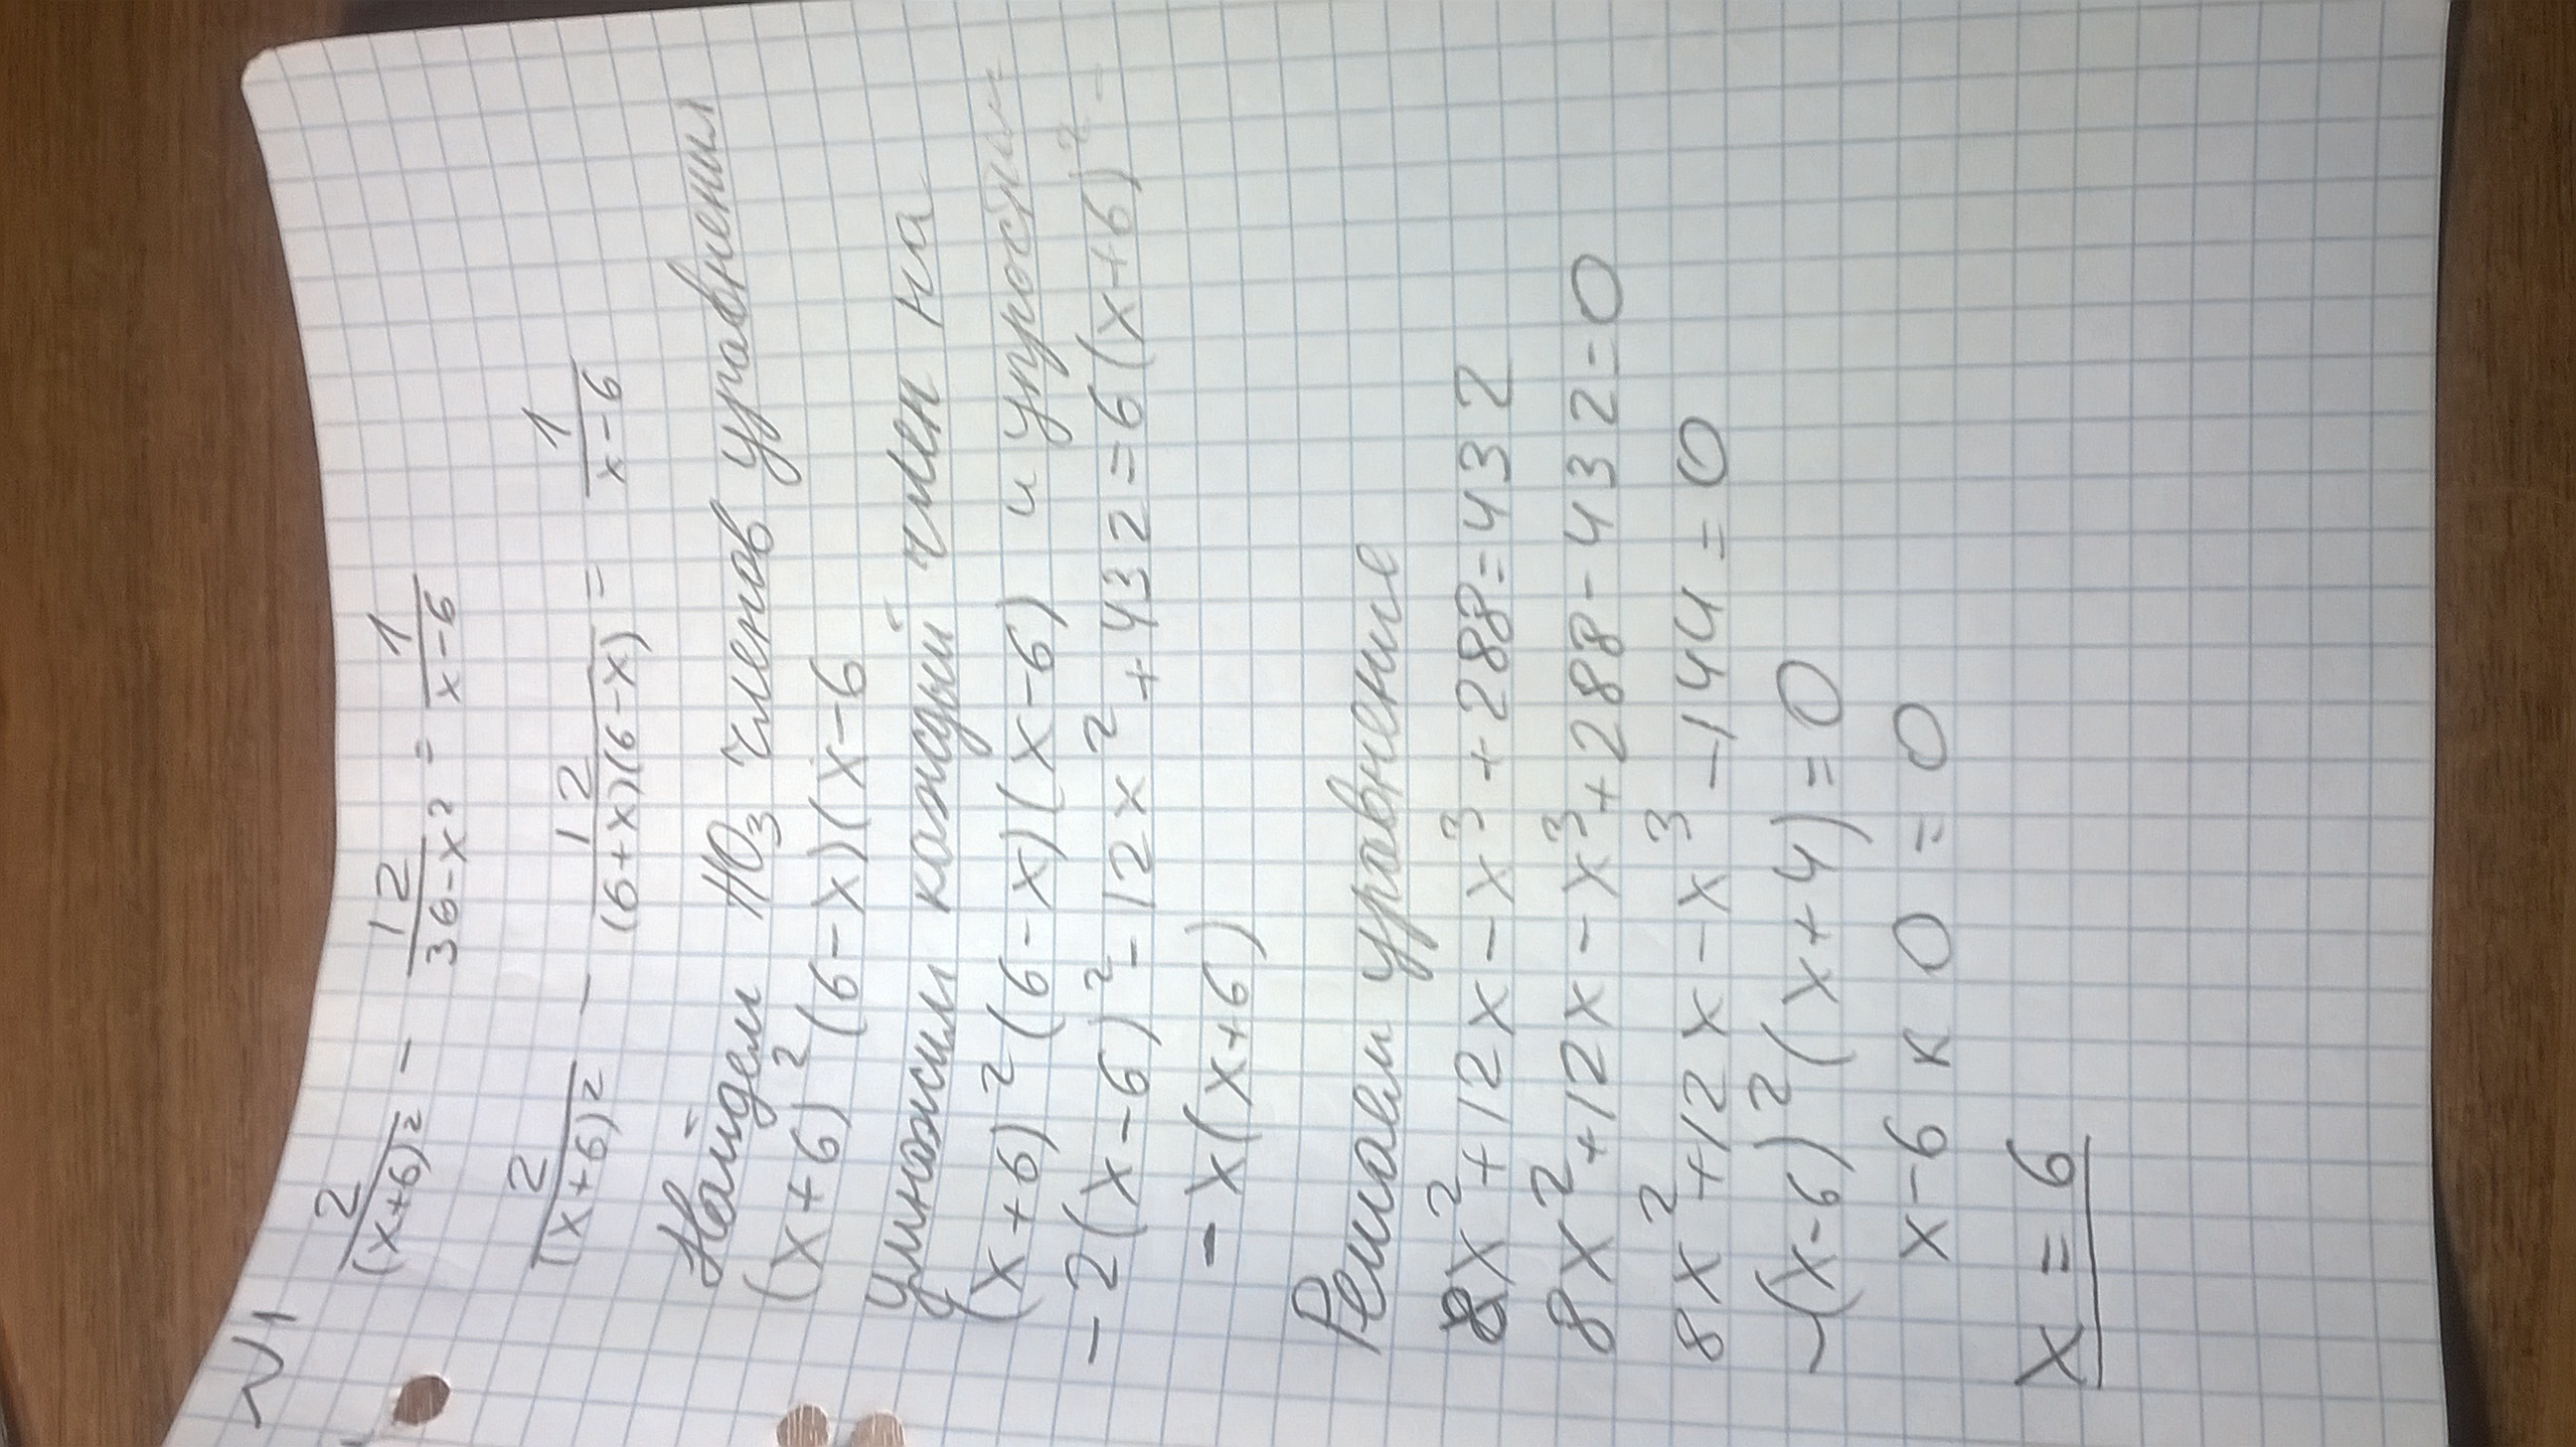 N1
2/(x+6)² - 12/(36-x²) = 1/(x-6)
2/(x+6)² - 12/((6+x)(6-x)) = 1/(x-6)
Найдем НОЗ членов уравнения
(x+6)²(6-x)(x-6
Умножим каждый член на
(x+6)²(6-x)(x-6) и упростим
-2(x-6)²-12x²+432=6(x+6)²-
-x(x+6)
Решаем уравнение
8x²+12x-x³+288=432
8x²+12x-x³+288-432=0
8x²+12x-x³-144=0
-(x-6)²(x+4)=0
x-6 к 0 = 0
x=6